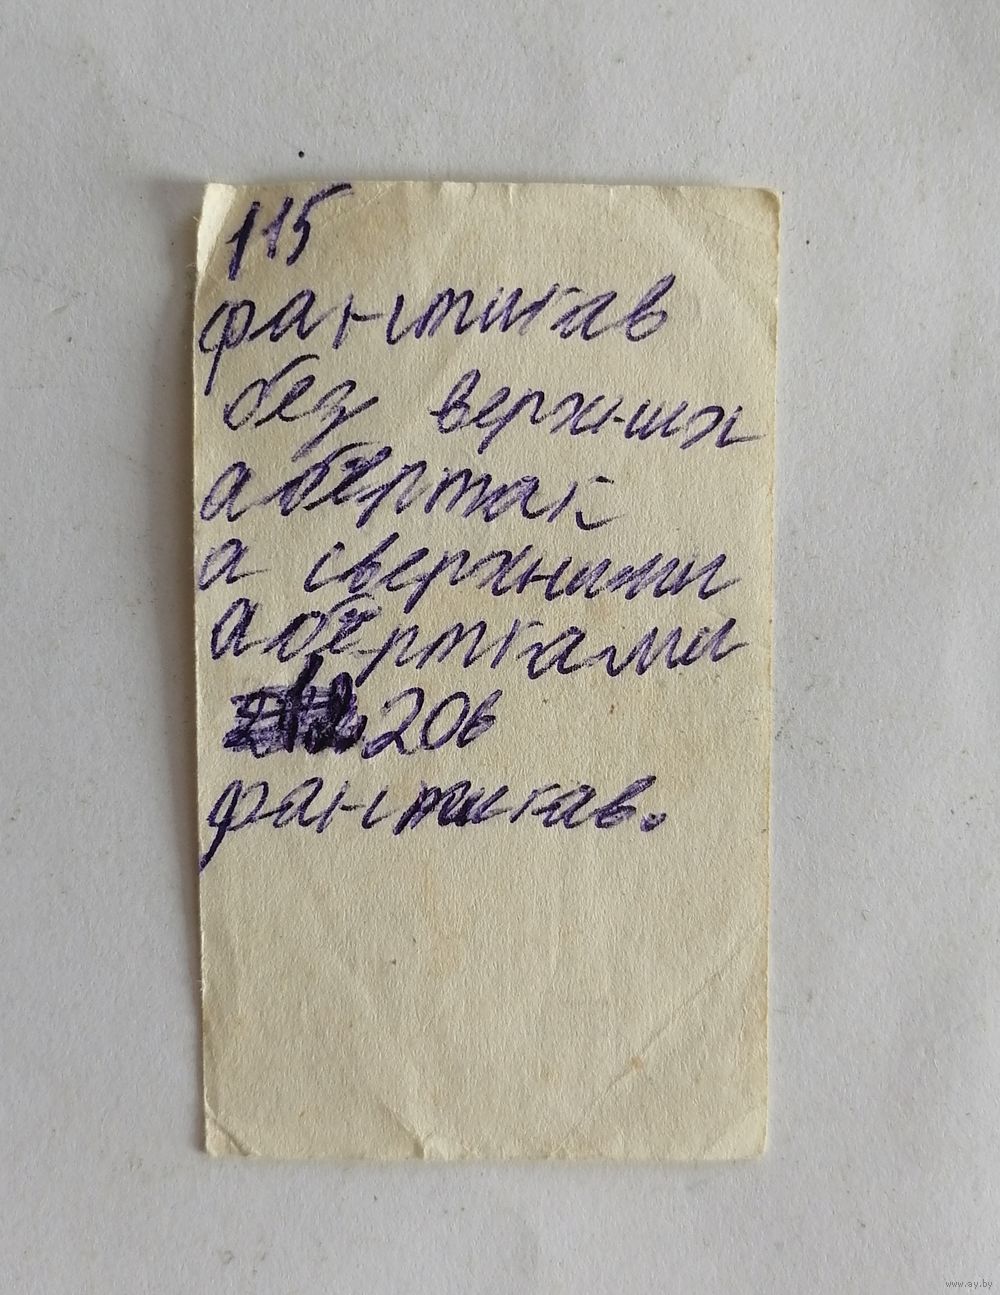 115
фантикав
без верхних
абёртак
а сверхними
абёртками
206
фантикав.
www.ay.by